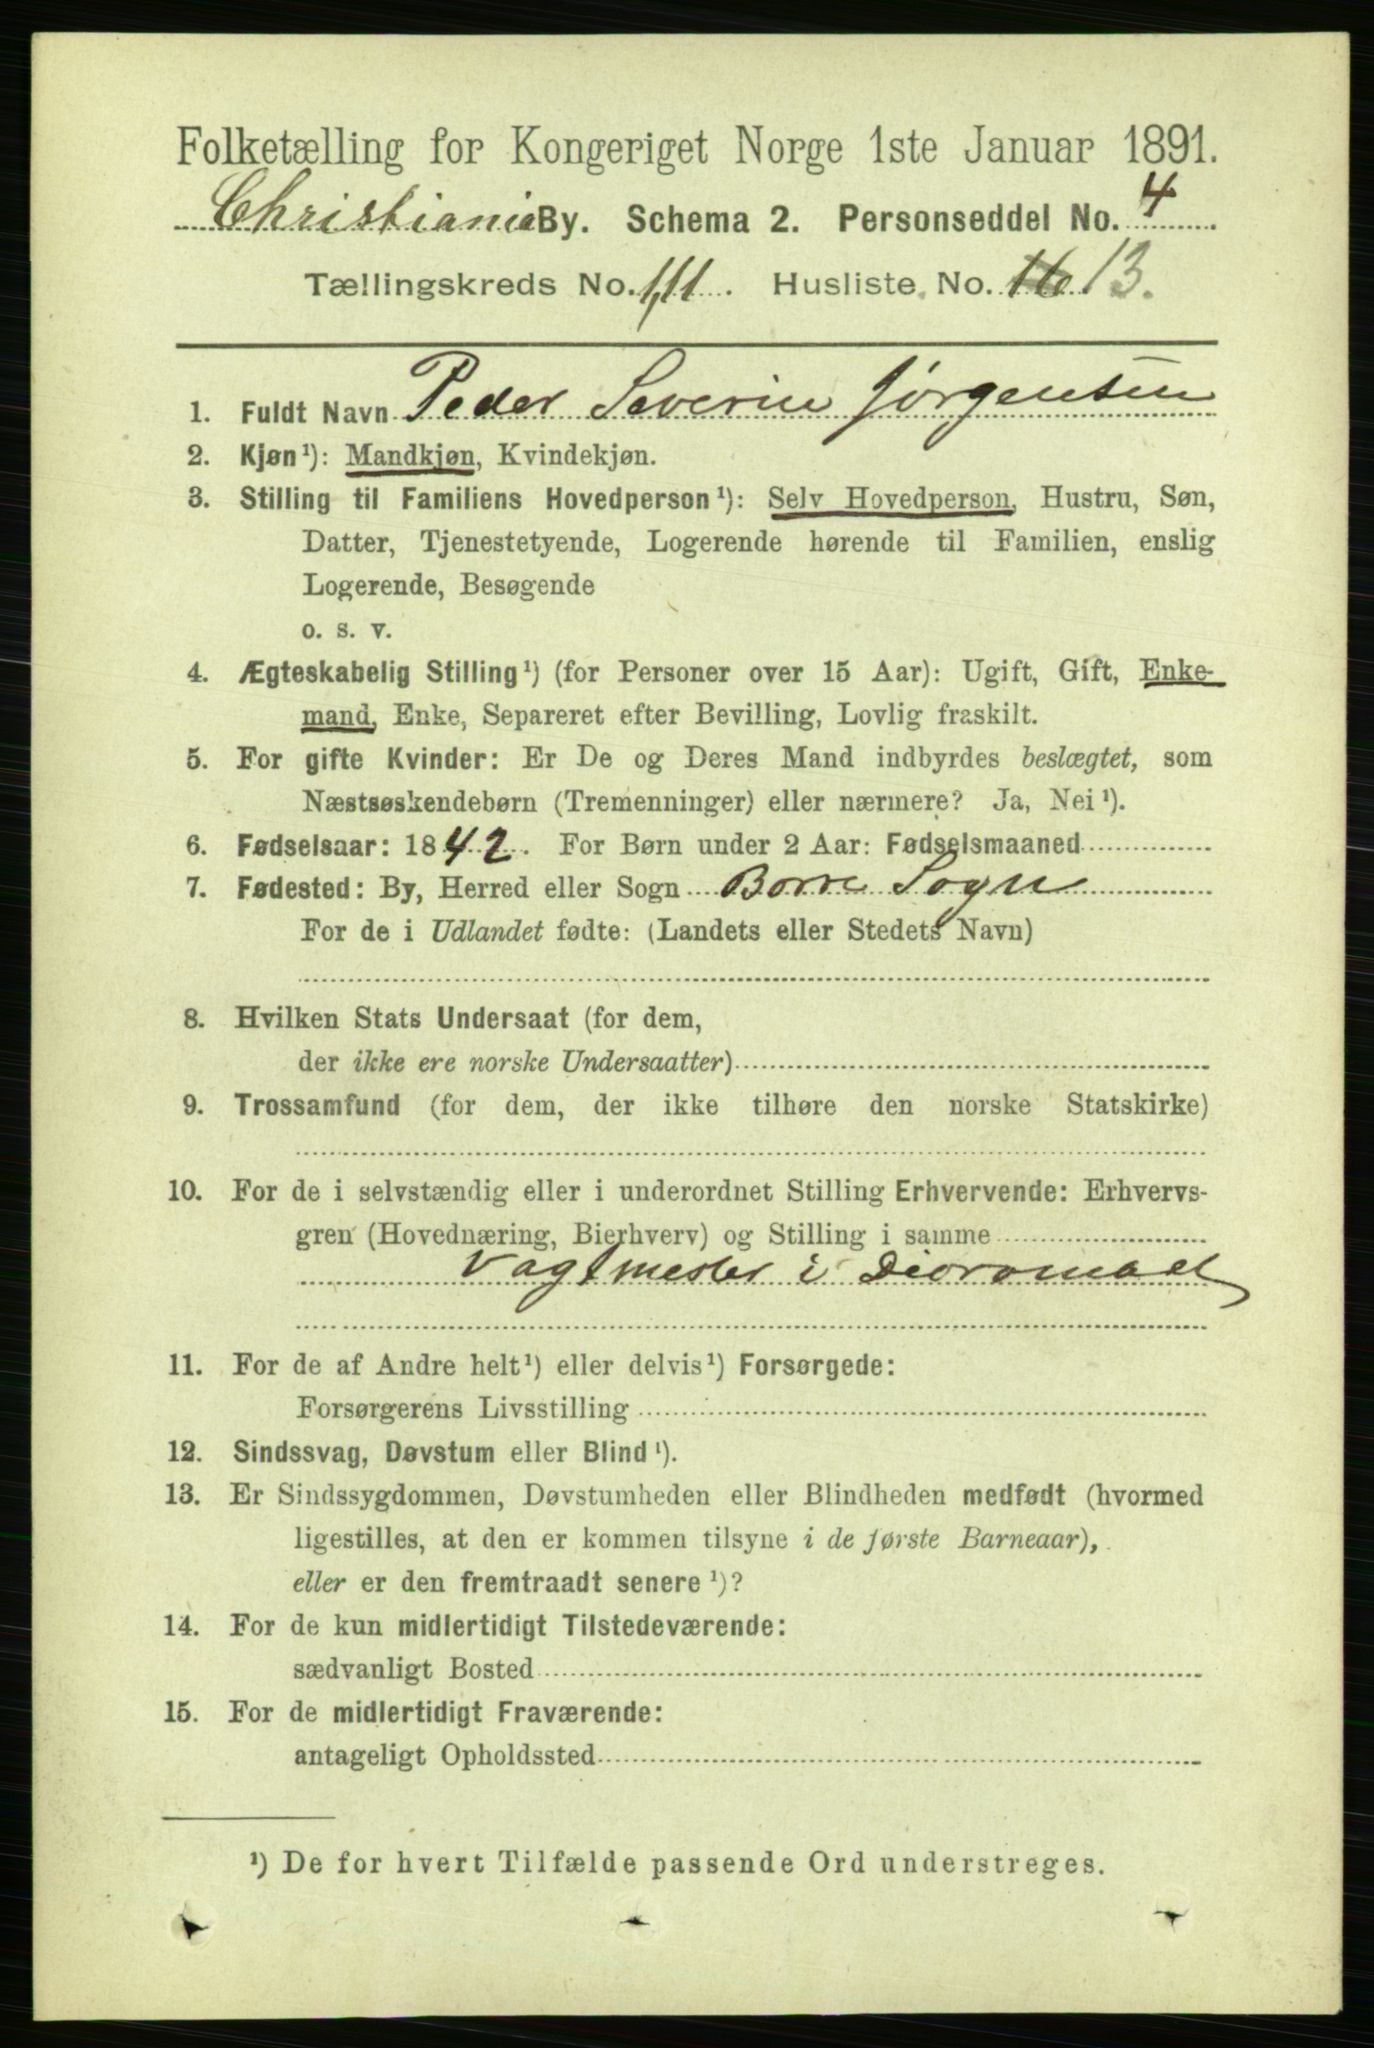 Folketælling for Kongeriget Norge 1ste Januar 1891.
Christiania By. Schema 2. Personseddel No. 4
Tællingskreds No. 111. Husliste No. 16 13.
1. Fuldt Navn Peder Severin Jørgensen
2. Kjøn¹): Mandkjøn, Kvindekjøn.
3. Stilling til Familiens Hovedperson¹): Selv Hovedperson, Hustru, Søn,
Datter, Tjenestetyende, Logerende hørende til Familien, enslig
Logerende, Besøgende
o. s. v.
4. Ægteskabelig Stilling¹) (for Personer over 15 Aar): Ugift, Gift, Enke-
mand, Enke, Separeret efter Bevilling, Lovlig fraskilt.
5. For gifte Kvinder: Er De og Deres Mand indbyrdes beslægtet, som
Næstsøskendebørn (Tremenninger) eller nærmere? Ja, Nei¹).
6. Fødselsaar: 1842. For Børn under 2 Aar: Fødselsmaaned
7. Fødested: By, Herred eller Sogn Borre Sogn
For de i Udlandet fødte: (Landets eller Stedets Navn)
8. Hvilken Stats Undersaat (for dem,
der ikke ere norske Undersaatter)
9. Trossamfund (for dem, der ikke tilhøre den norske Statskirke)
10. For de i selvstændig eller i underordnet Stilling Erhvervende: Erhvervs-
gren (Hovednæring, Bierhverv) og Stilling i samme
Vagtmester i Dioromaet
11. For de af Andre helt¹) eller delvis¹) Forsørgede:
Forsørgerens Livsstilling
12. Sindssvag, Døvstum eller Blind¹).
13. Er Sindssygdommen, Døvstumheden eller Blindheden medfødt (hvormed
ligestilles, at den er kommen tilsyne i de første Barneaar),
eller er den fremtraadt senere¹)?
14. For de kun midlertidigt Tilstedeværende:
sædvanligt Bosted
15. For de midlertidigt Fraværende:
antageligt Opholdssted
¹) De for hvert Tilfælde passende Ord understreges.